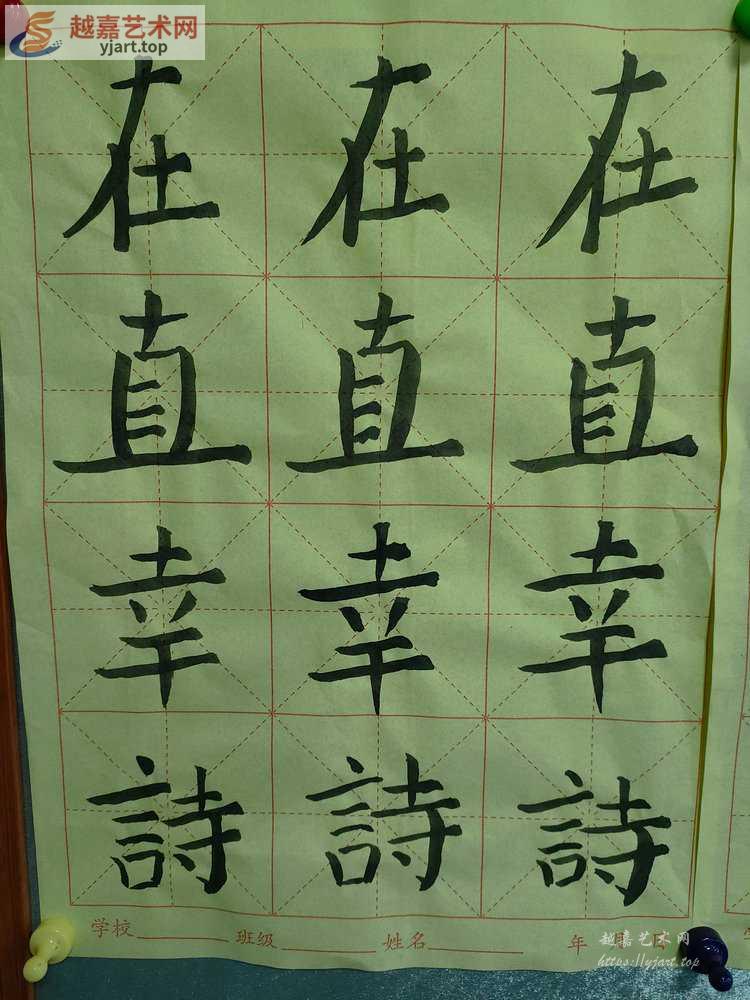 越嘉艺术网
yjart.top
在在在
直直直
幸幸幸
詩詩詩
学校 班级 姓名 年 月 日
越嘉艺术网
https://yjart.top